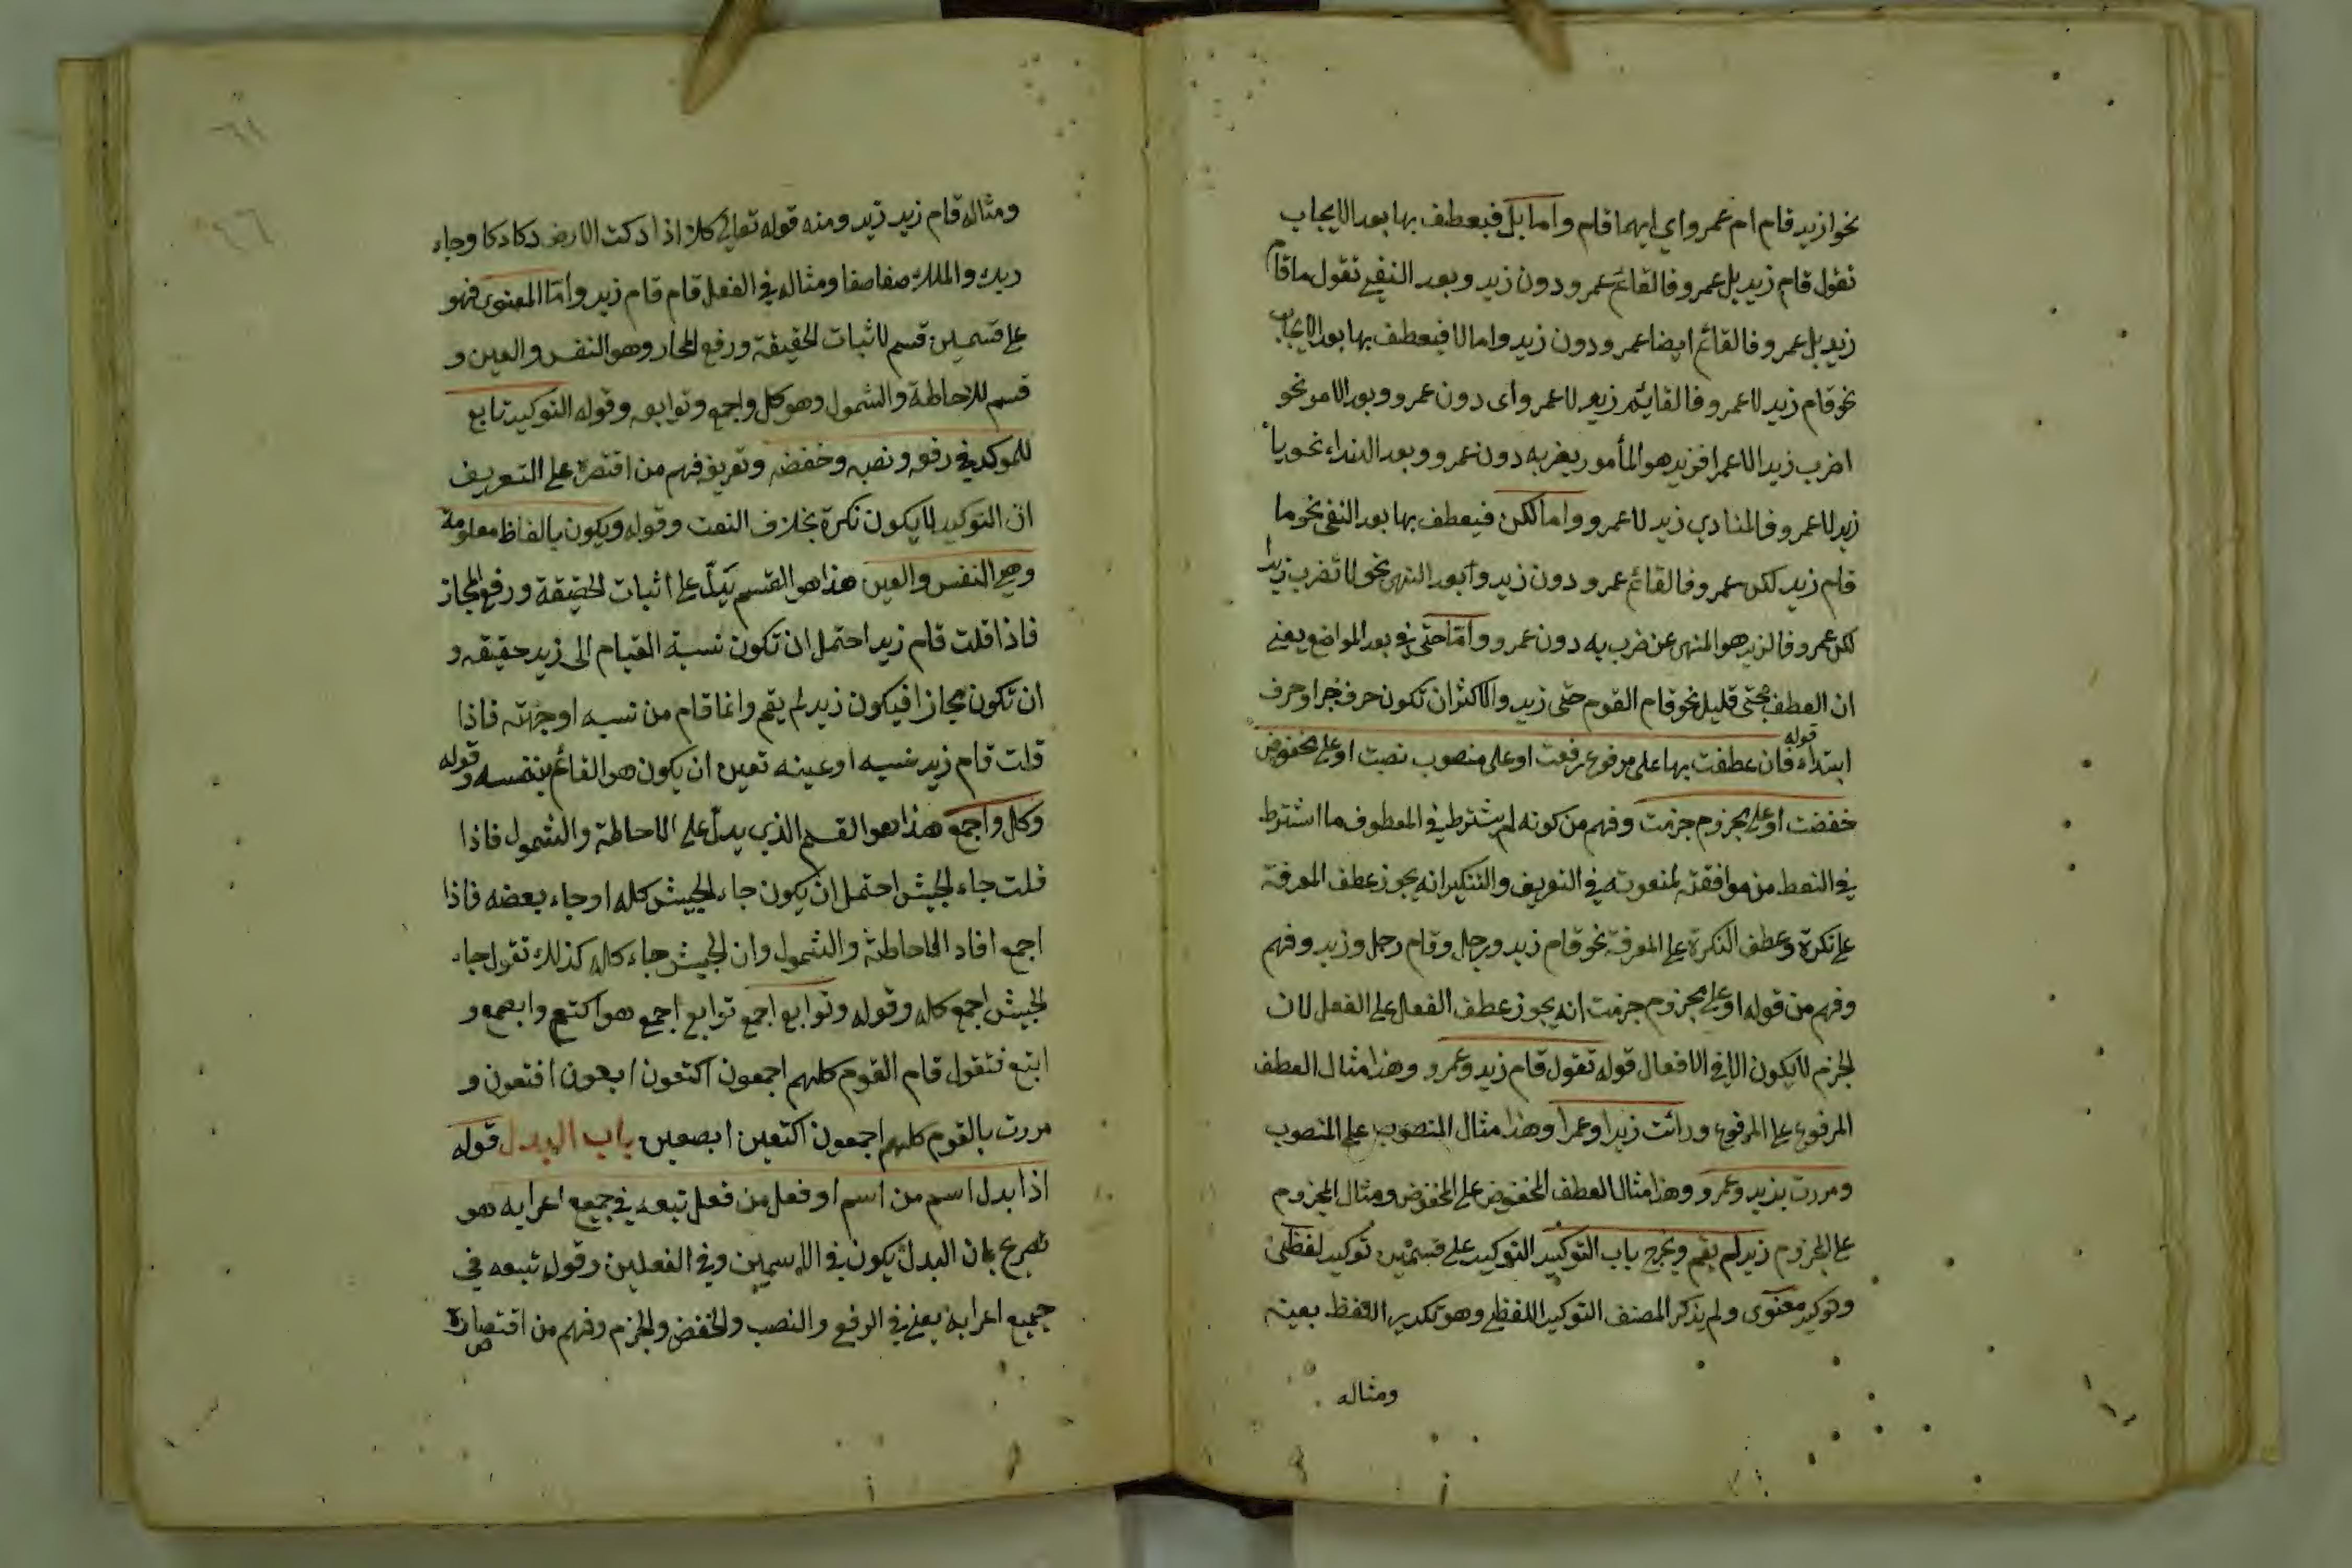 نحو ازيد قام ام عمرو اي ايهما قام واما بل فيعطف بها بعد الايجاب
تقول قام زيد بل عمرو فالقائم عمرو دون زيد وبعد النفي تقول ما قام
زيد بل عمرو فالقائم ايضا عمرو دون زيد واما لا فيعطف بها بعد الايجاب
نحو قام زيد لا عمرو فالقايم زيد لا عمرو اى دون عمرو وبعد الامر نحو
اضرب زيدا لا عمرا فزيد هو المأمور بضربه دون عمرو وبعد النداء نحو يا
زيد لا عمرو فالمنادي زيد لا عمرو واما لكن فيعطف بها بعد النفي نحو ما
قام زيد لكن عمرو فالقائم عمرو دون زيد وبعد النهى نحو لا تضرب زيدا
لكن عمرو فالزيد هو المنهى عن ضربه دون عمرو واما حتى في بعد المواضع يعني
ان العطف بحتى قليل نحو قام القوم حتى زيد والاكثر ان تكون حرف جر او حرف
ابتداء قوله فان عطفت بها على مرفوع رفعت او على منصوب نصبت او على مخفوض
خفضت او على مجزوم جزمت وفهم من كونه لم يشترط في المعطوف ما اشترط
في النعط من موافقته لمنعوته في التعريف والتنكير انه يجوز عطف المعرفة
على نكرة وعطف النكرة على المعرفة نحو قام زيد ورجل وقام رجل وزيد وفهم
وفهم من قوله او على مجزوم جزمت انه يجوز عطف الفعل على الفعل لان
الجزم لا يكون الا في الافعال قوله تقول قام زيد وعمرو وهذا مثال العطف
المرفوع على المرفوع ورائت زيدا وعمرا وهذا مثال المنصوب على المنصوب
ومررت بزيد وعمرو وهذا مثال العطف المخفوض على المخفوض ومثال المجزوم
على المجزوم زيد لم يقم ويخرج باب التوكيد التوكيد على قسمين توكيد لفظى
وتوكيد معنوى ولم يذكر المصنف التوكيد اللفظي وهو تكدير اللفظ بعينه
ومثاله
٦١
٦٦
ومثاله قام زيد زيد ومنه قوله تعالى كلا اذا دكت الارض دكا دكا وجاء
ربك والملك صفا صفا ومثاله في الفعل قام قام زيد واما المعنوى فهو
على قسمين قسم لاثبات الحقيقة ورفع المجاز وهو النفس والعين و
قسم للاحاطة والشمول وهو كل واجمع وتوابعه وقوله التوكيد تابع
للموكد في رفعه ونصبه وخفضه وتعريفه فهم من اقتصره على التعريف
ان التوكيد لا يكون نكرة بخلاف النعت وقوله ويكون بالفاظ معلومة
وهي النفس والعين هذا هو القسم يدل على اثبات الحقيقة ورفع المجاز
فاذا قلت قام زيد احتمل ان تكون نسبة القيام الى زيد حقيقه و
ان تكون مجازا فيكون زيد لم يقم وانما قام من نسبه او جهته فاذا
قلت قام زيد نفسه او عينه تعين ان يكون هو القائم بنفسه وقوله
وكل واجمع هذا هو القسم الذي يدل على الاحاطة والشمول فاذا
قلت جاء الجيش احتمل ان يكون جاء الجيش كله او جاء بعضه فاذا
اجمع افاد الاحاطة والشمول وان الجيش جاء كله كذلك تقول جاء
الجيش اجمع كله وقوله وتوابع اجمع توابع اجمع هو اكتع وابصع و
ابتع فتقول قام القوم كلهم اجمعون اكتعون ابعون و
مررت بالقوم كلهم اجمعون اكتعين ابصعين باب البدل قوله
اذا بدل اسم من اسم او فعل من فعل تبعه في جميع اعرابه هو
تصرح بان البدل يكون في الاسمين وفي الفعلين وقوله تبعه في
جميع اعرابه يعني في الرفع والنصب والخفض والجزم وفهم من اقتصاره